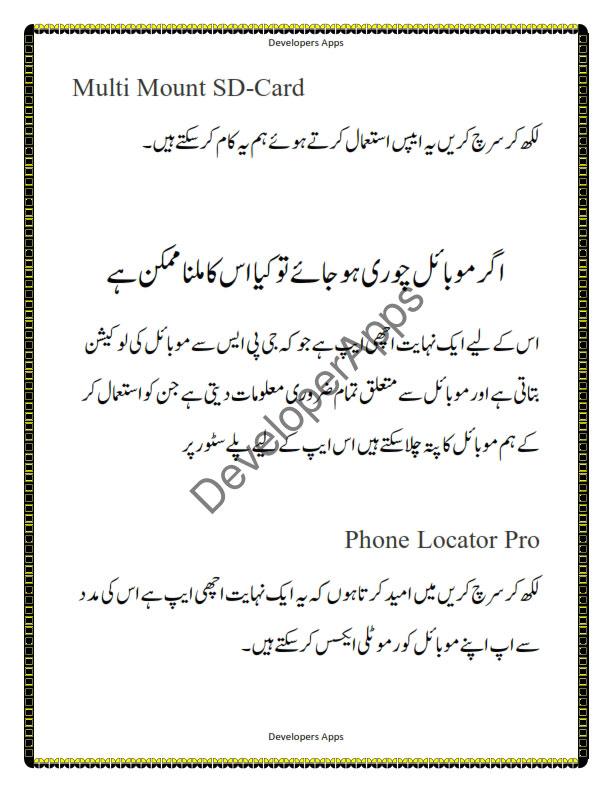 Developers Apps
Multi Mount SD-Card
لکھ کر سرچ کریں یہ ایپس استعمال کرتے ہوئے ہم یہ کام کر سکتے ہیں۔
اگر موبائل چوری ہو جائے تو کیا اس کا ملنا ممکن ہے
اس کے لیے ایک نہایت اچھی ایپ ہے جو کہ جی پی ایس سے موبائل کی لوکیشن
بتاتی ہے اور موبائل سے متعلق تمام ضروری معلومات دیتی ہے جن کو استعمال کر
کے ہم موبائل کا پتہ چلا سکتے ہیں اس ایپ کے لیے پلے سٹور پر
DeveloperApps
Phone Locator Pro
لکھ کر سرچ کریں میں امید کرتا ہوں کہ یہ ایک نہایت اچھی ایپ ہے اس کی مدد
سے اپ اپنے موبائل کو رموٹلی ایکسس کر سکتے ہیں۔
Developers Apps